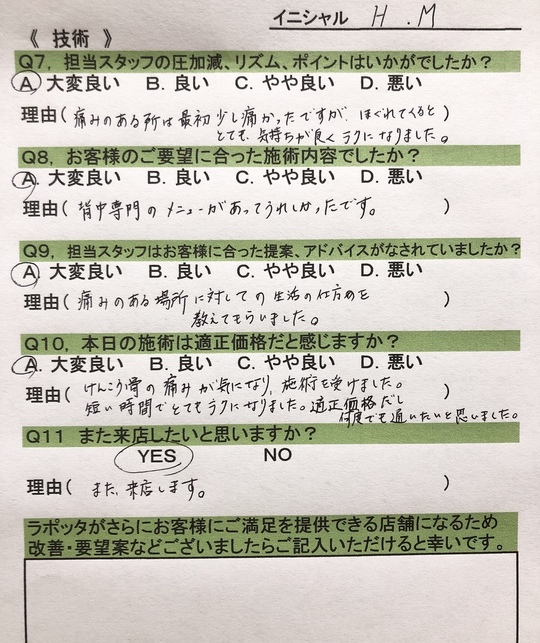 イニシャル H.M
《 技術 》
Q7, 担当スタッフの圧加減、リズム、ポイントはいかがでしたか?
A. 大変良い B. 良い C. やや良い D. 悪い
理由( 痛みのある所は最初少し痛かったですが、ほぐれてくると
とても、気持ちが良くラクになりました。 )
Q8, お客様のご要望に合った施術内容でしたか?
A. 大変良い B. 良い C. やや良い D. 悪い
理由( 背中専門のメニューがあってうれしかったです。 )
Q9, 担当スタッフはお客様に合った提案、アドバイスがなされていましたか?
A. 大変良い B. 良い C. やや良い D. 悪い
理由( 痛みのある場所に対しての生活の仕方のを )
教えてもらいました。
Q10, 本日の施術は適正価格だと感じますか?
A. 大変良い B. 良い C. やや良い D. 悪い
理由( けんこう骨の痛みが気になり、施術を受けました。 )
短い時間でとてもラクになりました。適正価格だし
何度でも通いたいと思いました。
Q11 また来店したいと思いますか?
YES NO
理由( また、来店します。 )
ラポッタがさらにお客様にご満足を提供できる店舗になるため
改善・要望案などございましたらご記入いただけると幸いです。